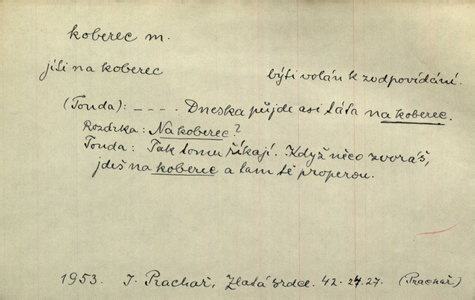 koberec m.
jíti na koberec býti volán k zodpovídání.
(Tonda): – – – – Dneska půjde asi táta na koberec.
Rozdrka: Na koberec?
Tonda: Tak tomu říkají. Když něco zvoráš,
jdeš na koberec a tam tě properou.
1953. J. Prachař, Zlatá srdce. 42. 24. 27. (Prachař)